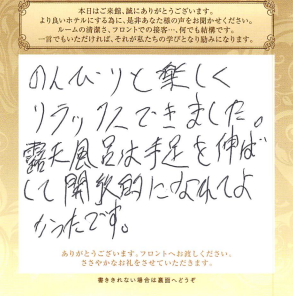 本日はご来館、誠にありがとうございます。
より良いホテルにする為に、是非あなた様の声をお聞かせください。
ルームの清潔さ、フロントでの接客…、何でも結構です。
一言でもいただければ、それが私たちの学びとなり励みになります。
のんびりと楽しく
リラックスできました。
露天風呂は手足を伸ば
して開放的になれてよ
かったです。
ありがとうございます、フロントへお渡しください。
ささやかなお礼をさせていただきます。
書ききれない場合は裏面へどうぞ